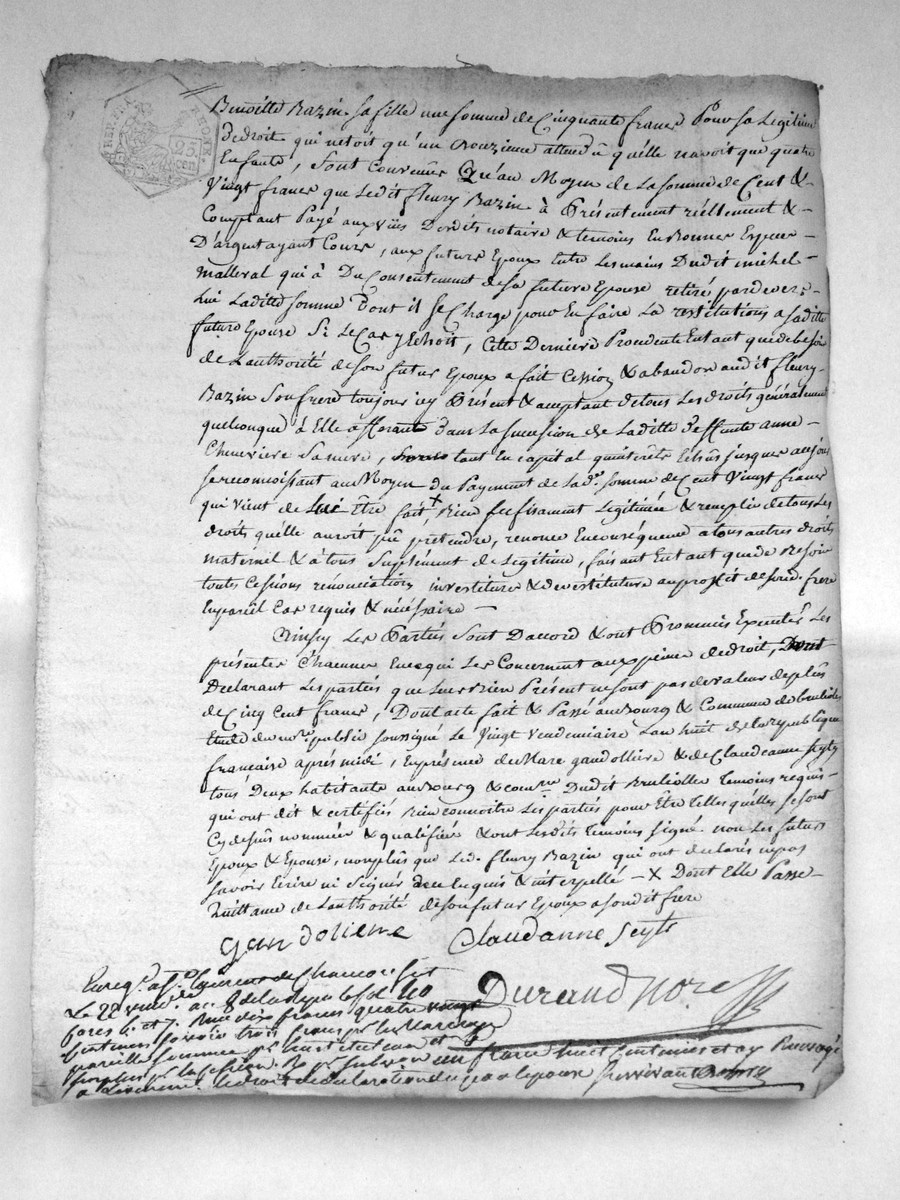 RHONE
23
cen
Benoitte Bazin sa fille une somme de Cinquante francs Pour sa Legitime
de droit qui netoit qu'un Onzieme attendû quélle navoit que quatre
Enfants, Sont Convenus Qu'au Moyen de la somme de Cent &
Vingt francs que Ledit fleury Bazin à Présentement réellement &
Comptant Payé aux vûs Desdits notaire & temoins En Bonnes Especes
D'argent ayant Cours, aux futurs Epoux Entre les mains Dudit michel
malleval qui à Du Consentement de sa future Epouse retiré pardevers
Lui Laditte somme dont il se Charge pour En faire La restitutions a saditte
future Epouse Si Le Cas y Echoit, Cette Derniere Procedente Entant que de besoin
de Lauthorité de son futur Epoux a fait Cession & abandon audit fleury
Bazin Son frere toujour icy Présent & acceptant de tous Les droits généralement
quelconque à Elle afferants dans La sucession de Laditte deffunte anne
Cheuviere Sa mere, tant En capital quinterêts Echûs jusques a ce jour
se reconnoissant au Moyen du Payement de Lad. somme de Cent Vingt francs
qui Vient de Lui être fait X Bien sufisament Legitimée & remplie de tous Les
droits quélle auroit pû prétendre, renonce En conséquence a tous autres droits
maternel & à tous Suplément de Legitime, faisant Entant que de Besoin
touts Cessions rénonciations investiture & devestiture au proffit de sond. frere
En pareil Cas requis & nécéssaire
Ainsy Les Parties Sont D'accord & ont Promis Executer Les
présentes Chacunes En ce qui Les Concernent aux peines de droit,
Declarant Les parties que Leurs Biens Présent ne sont pas de valeur de plûs
de Cinq Cent francs, Dont acte fait & Passé au Bourg & Commune de Brulioles
Etude du no.re public soussigné Le Vingt Vendemiaire L'an huit de la republique
francaise après midi, En présence de Marc gandolliere & de Claude anne Seyty
tous Deux habitants au Bourg & com.ne Dudit Brulioles Temoins requis
qui ont dit & certifiés Bien connoitre Les parties pour Être telles quélles se sont
Cy dessûs nommées & qualifiés & ont Lesdits temoins signé non Les futurs
Epoux & Epouse, non plûs que Led. fleury Bazin qui ont declarés ne pas
savoir Ecrire ni Signer de ce Enquis & interpellé - X Dont Elle Passe
Quittance de Lauthorité de son futur Epoux a son dit frere
gandoliere Claud anne Seyty
Durand nore
Enreg. a St. Laurent de Chamousset
Le 22 vend. an 8 de la
Reçu dix francs quatre vingt
centimes savoir trois francs p. le Mariage
pareille somme p.
p. la cession un franc huit centimes